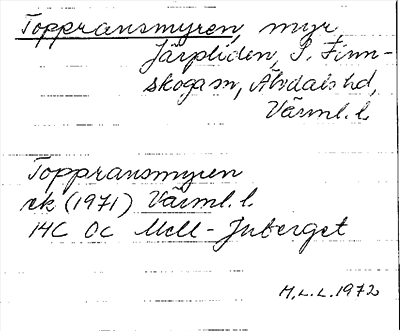 Toppransmyren, myr,
Järpliden, S. Finn-
skoga sn, Älvdals hd,
Värml. l.
Toppransmyren
ek (1971) Värml. l.
14C 0c Mell-Juberget
H.L.L. 1972